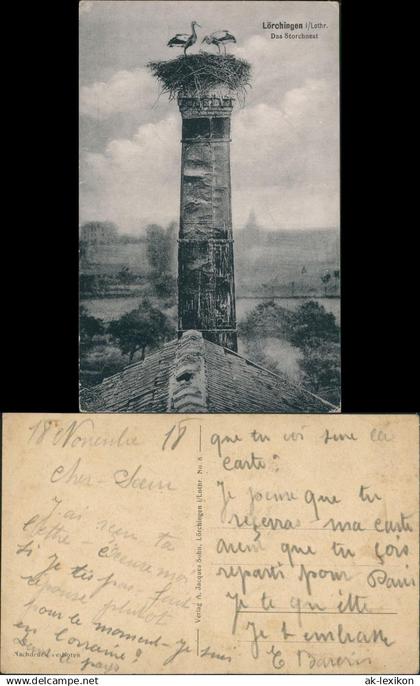 Lörchingen i/Lothr.
Das Storchnest
18 Novembre 18
Cher - Sœur
J'ai reçu ta
lettre - excuse moi
si je
réponse plutôt
pour le moment - je suis
en Lorraine?
Dans le pays
Nachdruck verboten
Verlag A. Jacques Sohn, Lörchingen i/Lothr. No. 8
que tu voi sure la
carte:
Je pense que tu
recevras - ma carte
avent que tu sois
reparti pour Paris
Je te quitte
Je t embrasse
ak-lexikon.com